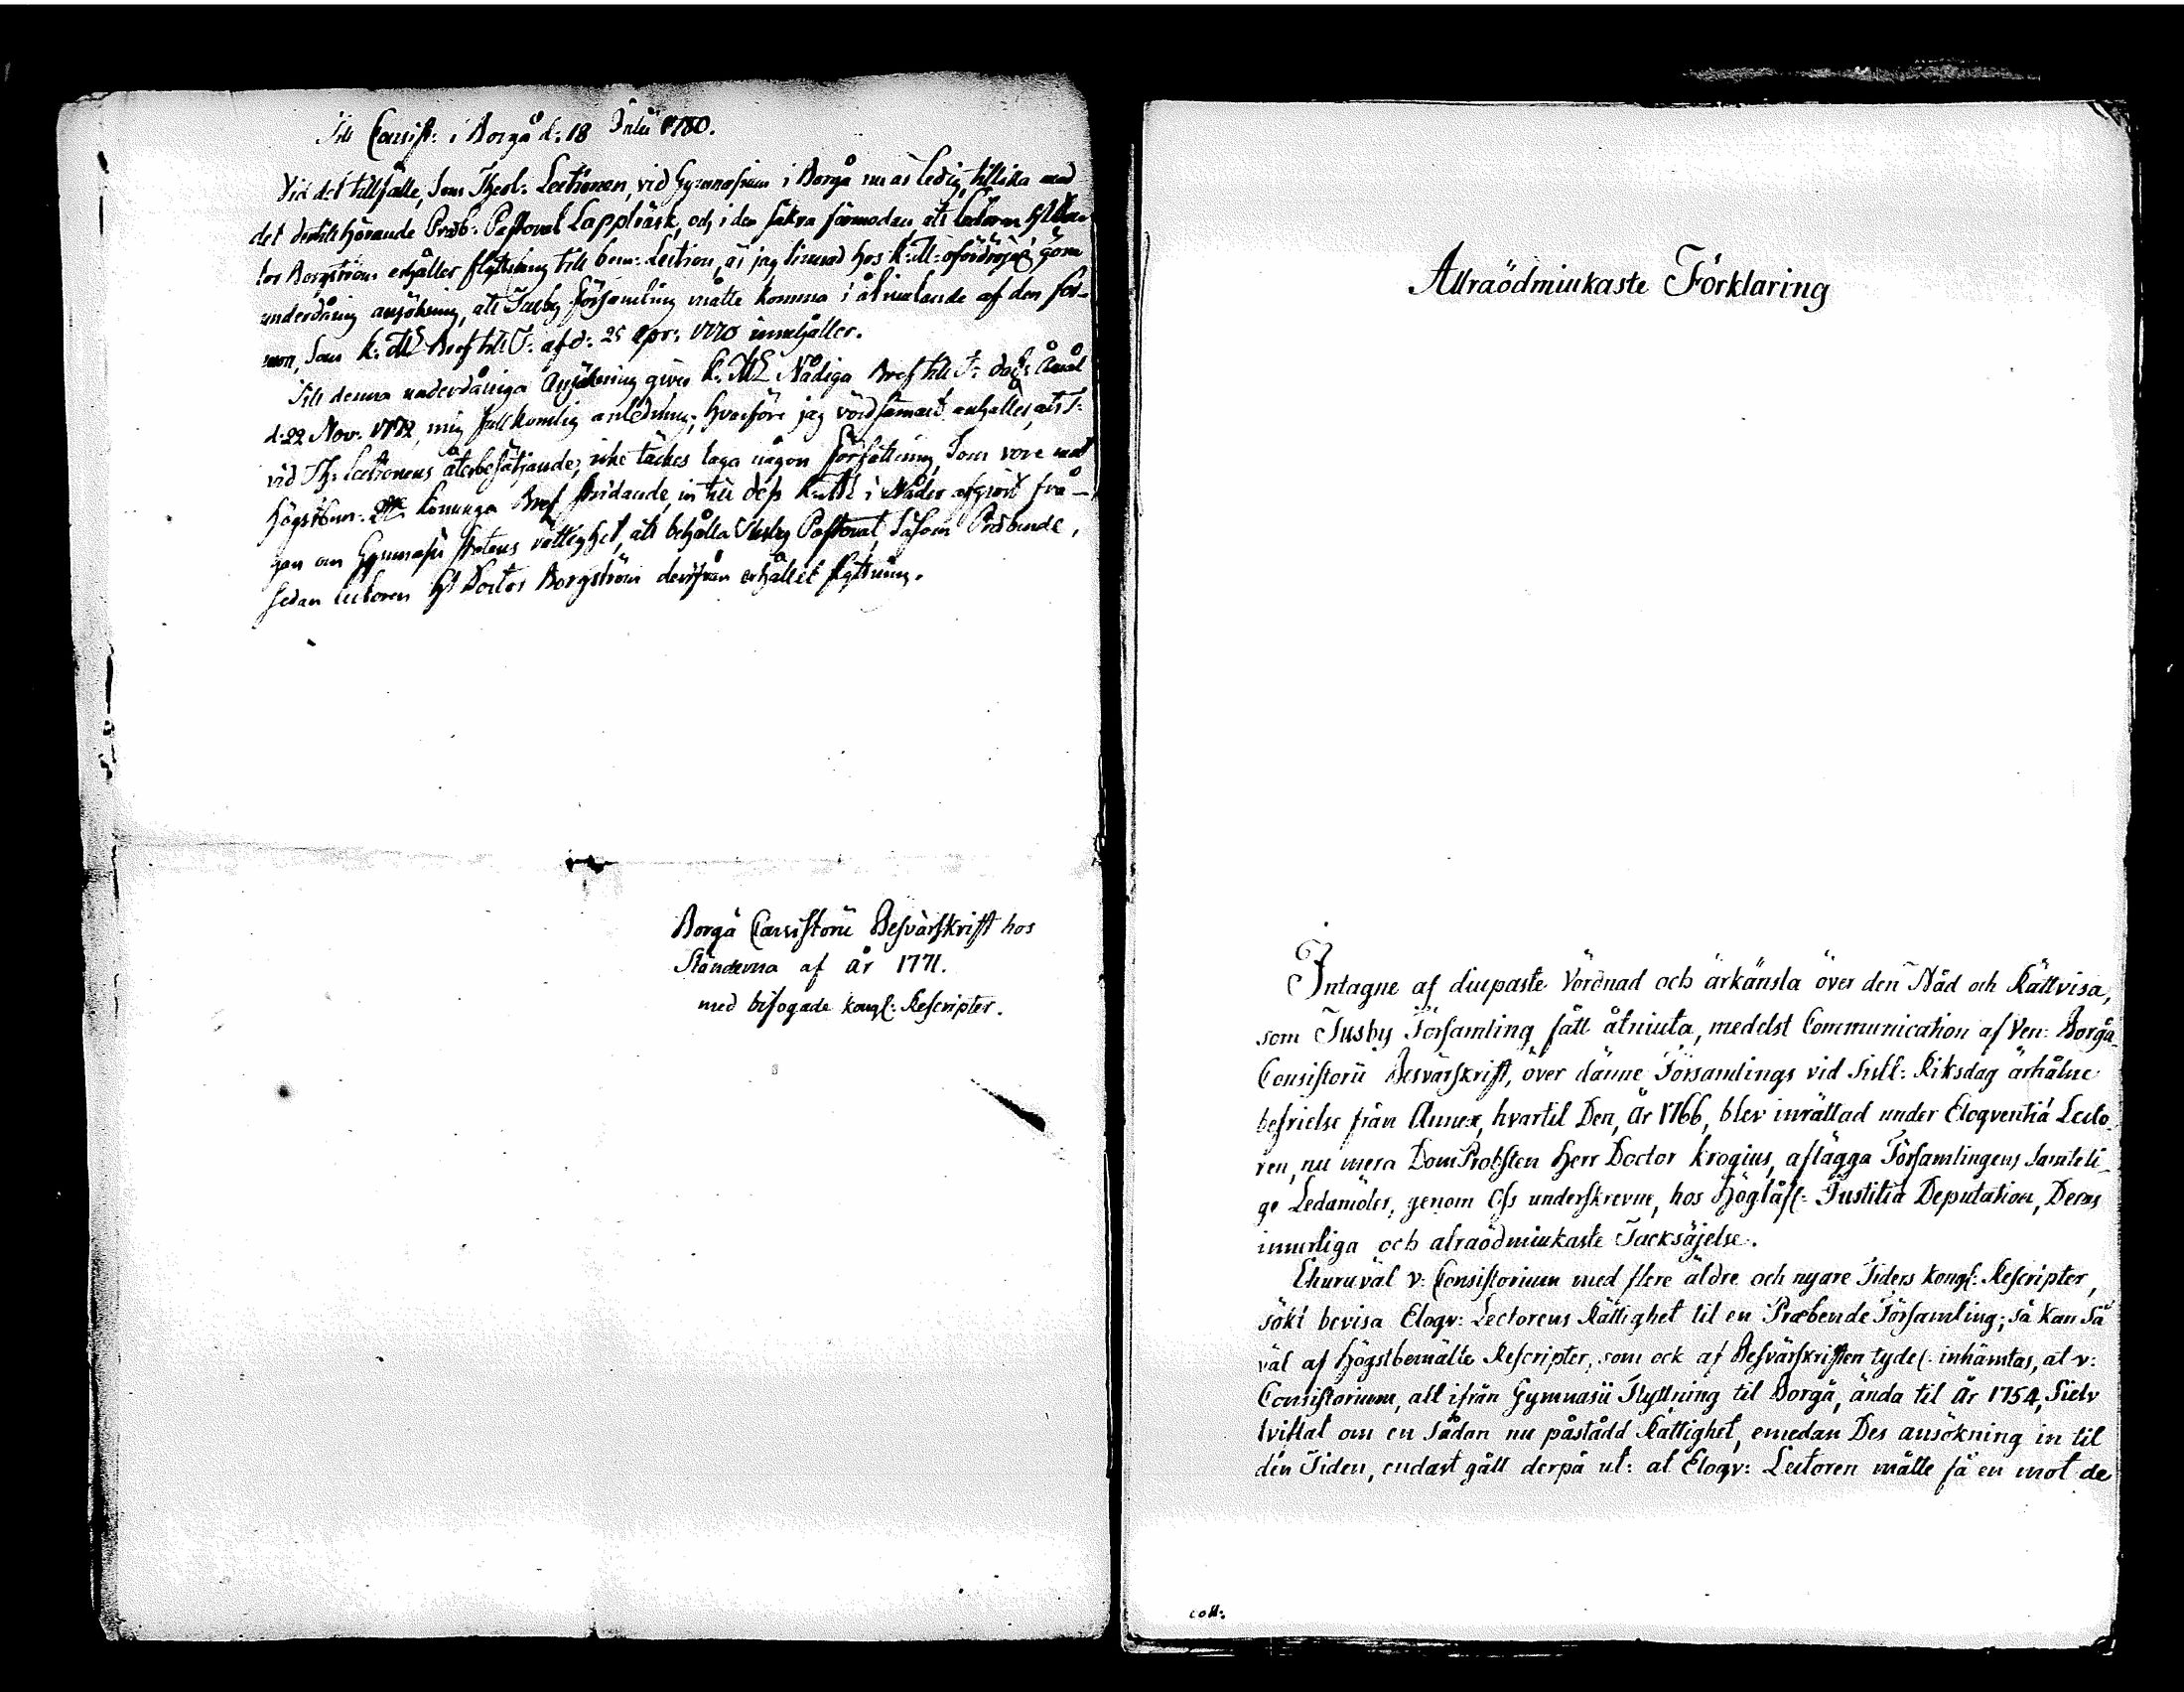 Till Consist: i Borgå d: 18 Julii 1780.
Vid det tillfälle, som Theol: Lectionen, vid Gymnasium i Borgå nu är ledig, tillika med
det dertill hörande Præb: Pastorat Lappträsk, och i den säkra förmodan, att Lectoren Hr Doc-
tor Borgström erhåller flyttning till bem: Lection, är jag sinnad hos K: M: ofördröjel: göra
underdånig ansökning, att Tusby församling måtte komma i åtniutande af den för-
mon, som K: Mts Bref till C: af d: 25 Apr: 1770 innehåller.
Till denna underdåniga Ansökning gives K: Mts Nådiga Bref till C: dat: Åmål
d: 22 Nov: 1772, mig fullkomlig anledning; hvarföre jag vördsamast anhåller, att C:
vid Th: Lectionens återbesättjande, icke täckes taga någon författning, som vore mot
högstbem: Konunga Bref stridande, in till dess K: Mt i Nåder afgjort frå-
gan om Gymnasii Statens rättighet, att behålla Tusby Pastorat, såsom Præbende,
sedan Lectoren Hr Doctor Borgström derifrån erhållit flyttning.
Borgå Consistorii Besvärskrift hos
Ständerna af år 1771.
med bifogade Kongl: Rescripter.
Allraödmiukaste Förklaring
Intagne af diupaste Vördnad och ärkänsla över den Nåd och Rättvisa,
som Tusby Församling fått åtniuta, medelst Communication af Ven: Borgå
Consistorii Besvärskrift, över dänne Församlings vid sistl: Riksdag ärhålne
befrielse från Annex, hvartil Den, År 1766, blev inrättad under Eloqventiæ Lecto-
ren, nu mera DomProbsten Herr Doctor Krogius, aflägga Församlingens samteli-
ge Ledamöter, genom Oss underskrevne, hos Höglåfl: Justitiæ Deputation, Deras
innerliga och alraödmiukaste Tacksäjelse.
Ehuruväl V: Consistorium med flere äldre och nyare Tiders Kongl: Rescripter,
sökt bevisa Eloqv: Lectorens Rättighet til en Præbende Församling; så kan så
väl af Högstbemälte Rescripter, som ock af Besvärskriften tydel: inhämtas, at V:
Consistorium, alt ifrån Gymnasii Flyttning til Borgå, ända til År 1754, Sielv
tviflat om en sådan nu påstådd Rättighet, emedan Des ansökning in til
den Tiden, endast gått derpå ut: at Eloqv: Lectoren måtte få en mot de
coll: